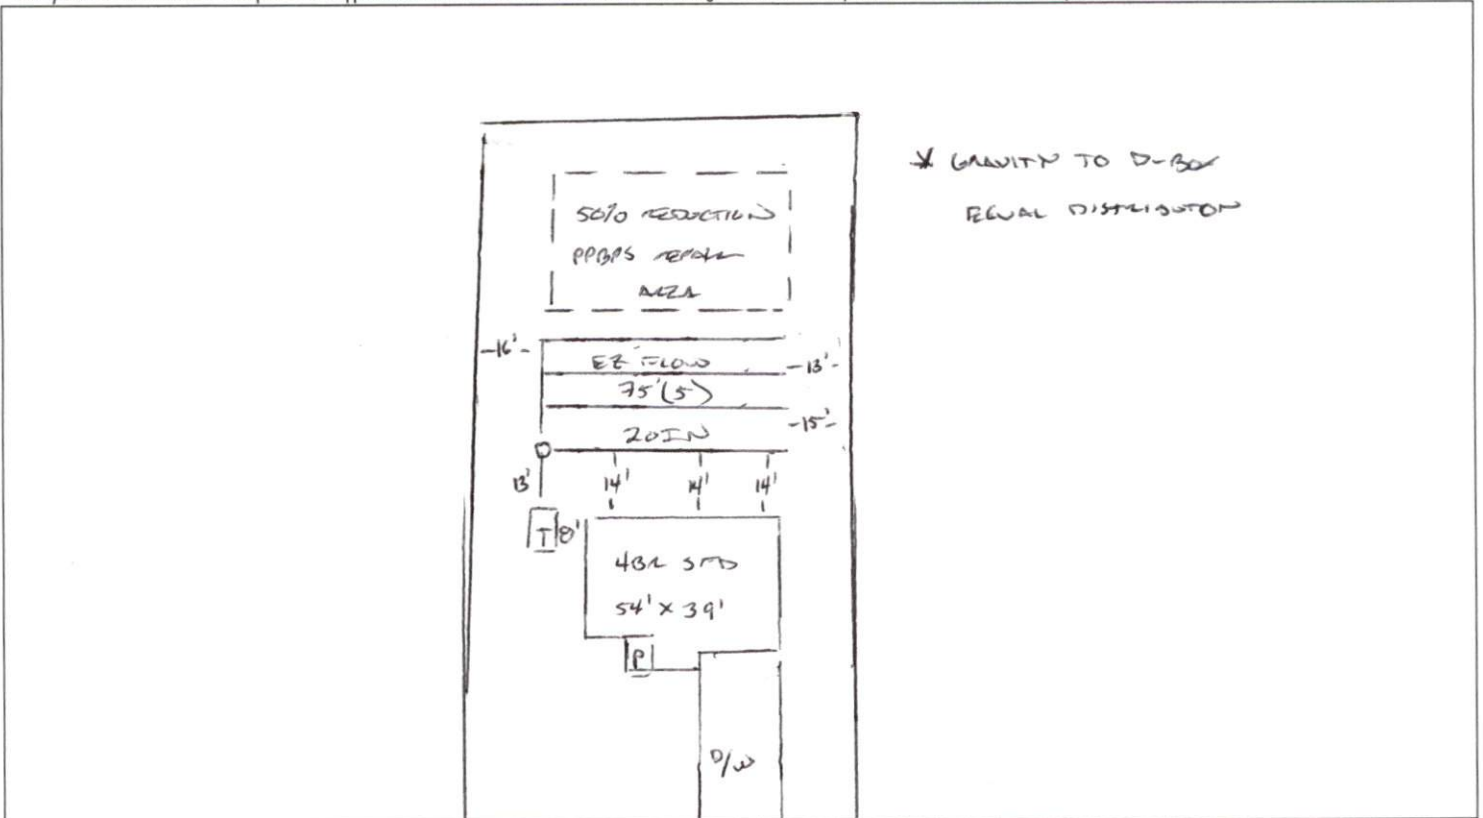 * GRAVITY TO D-BOX
EQUAL DISTRIBUTION
50% REDUCTION
PPBPS REPAIR
AREA
-16'-
EZ FLOW
-13'-
75'(5)
-15'-
20IN
13'
14'
14'
14'
T
8'
4BR SFD
54' x 39'
P
D/W